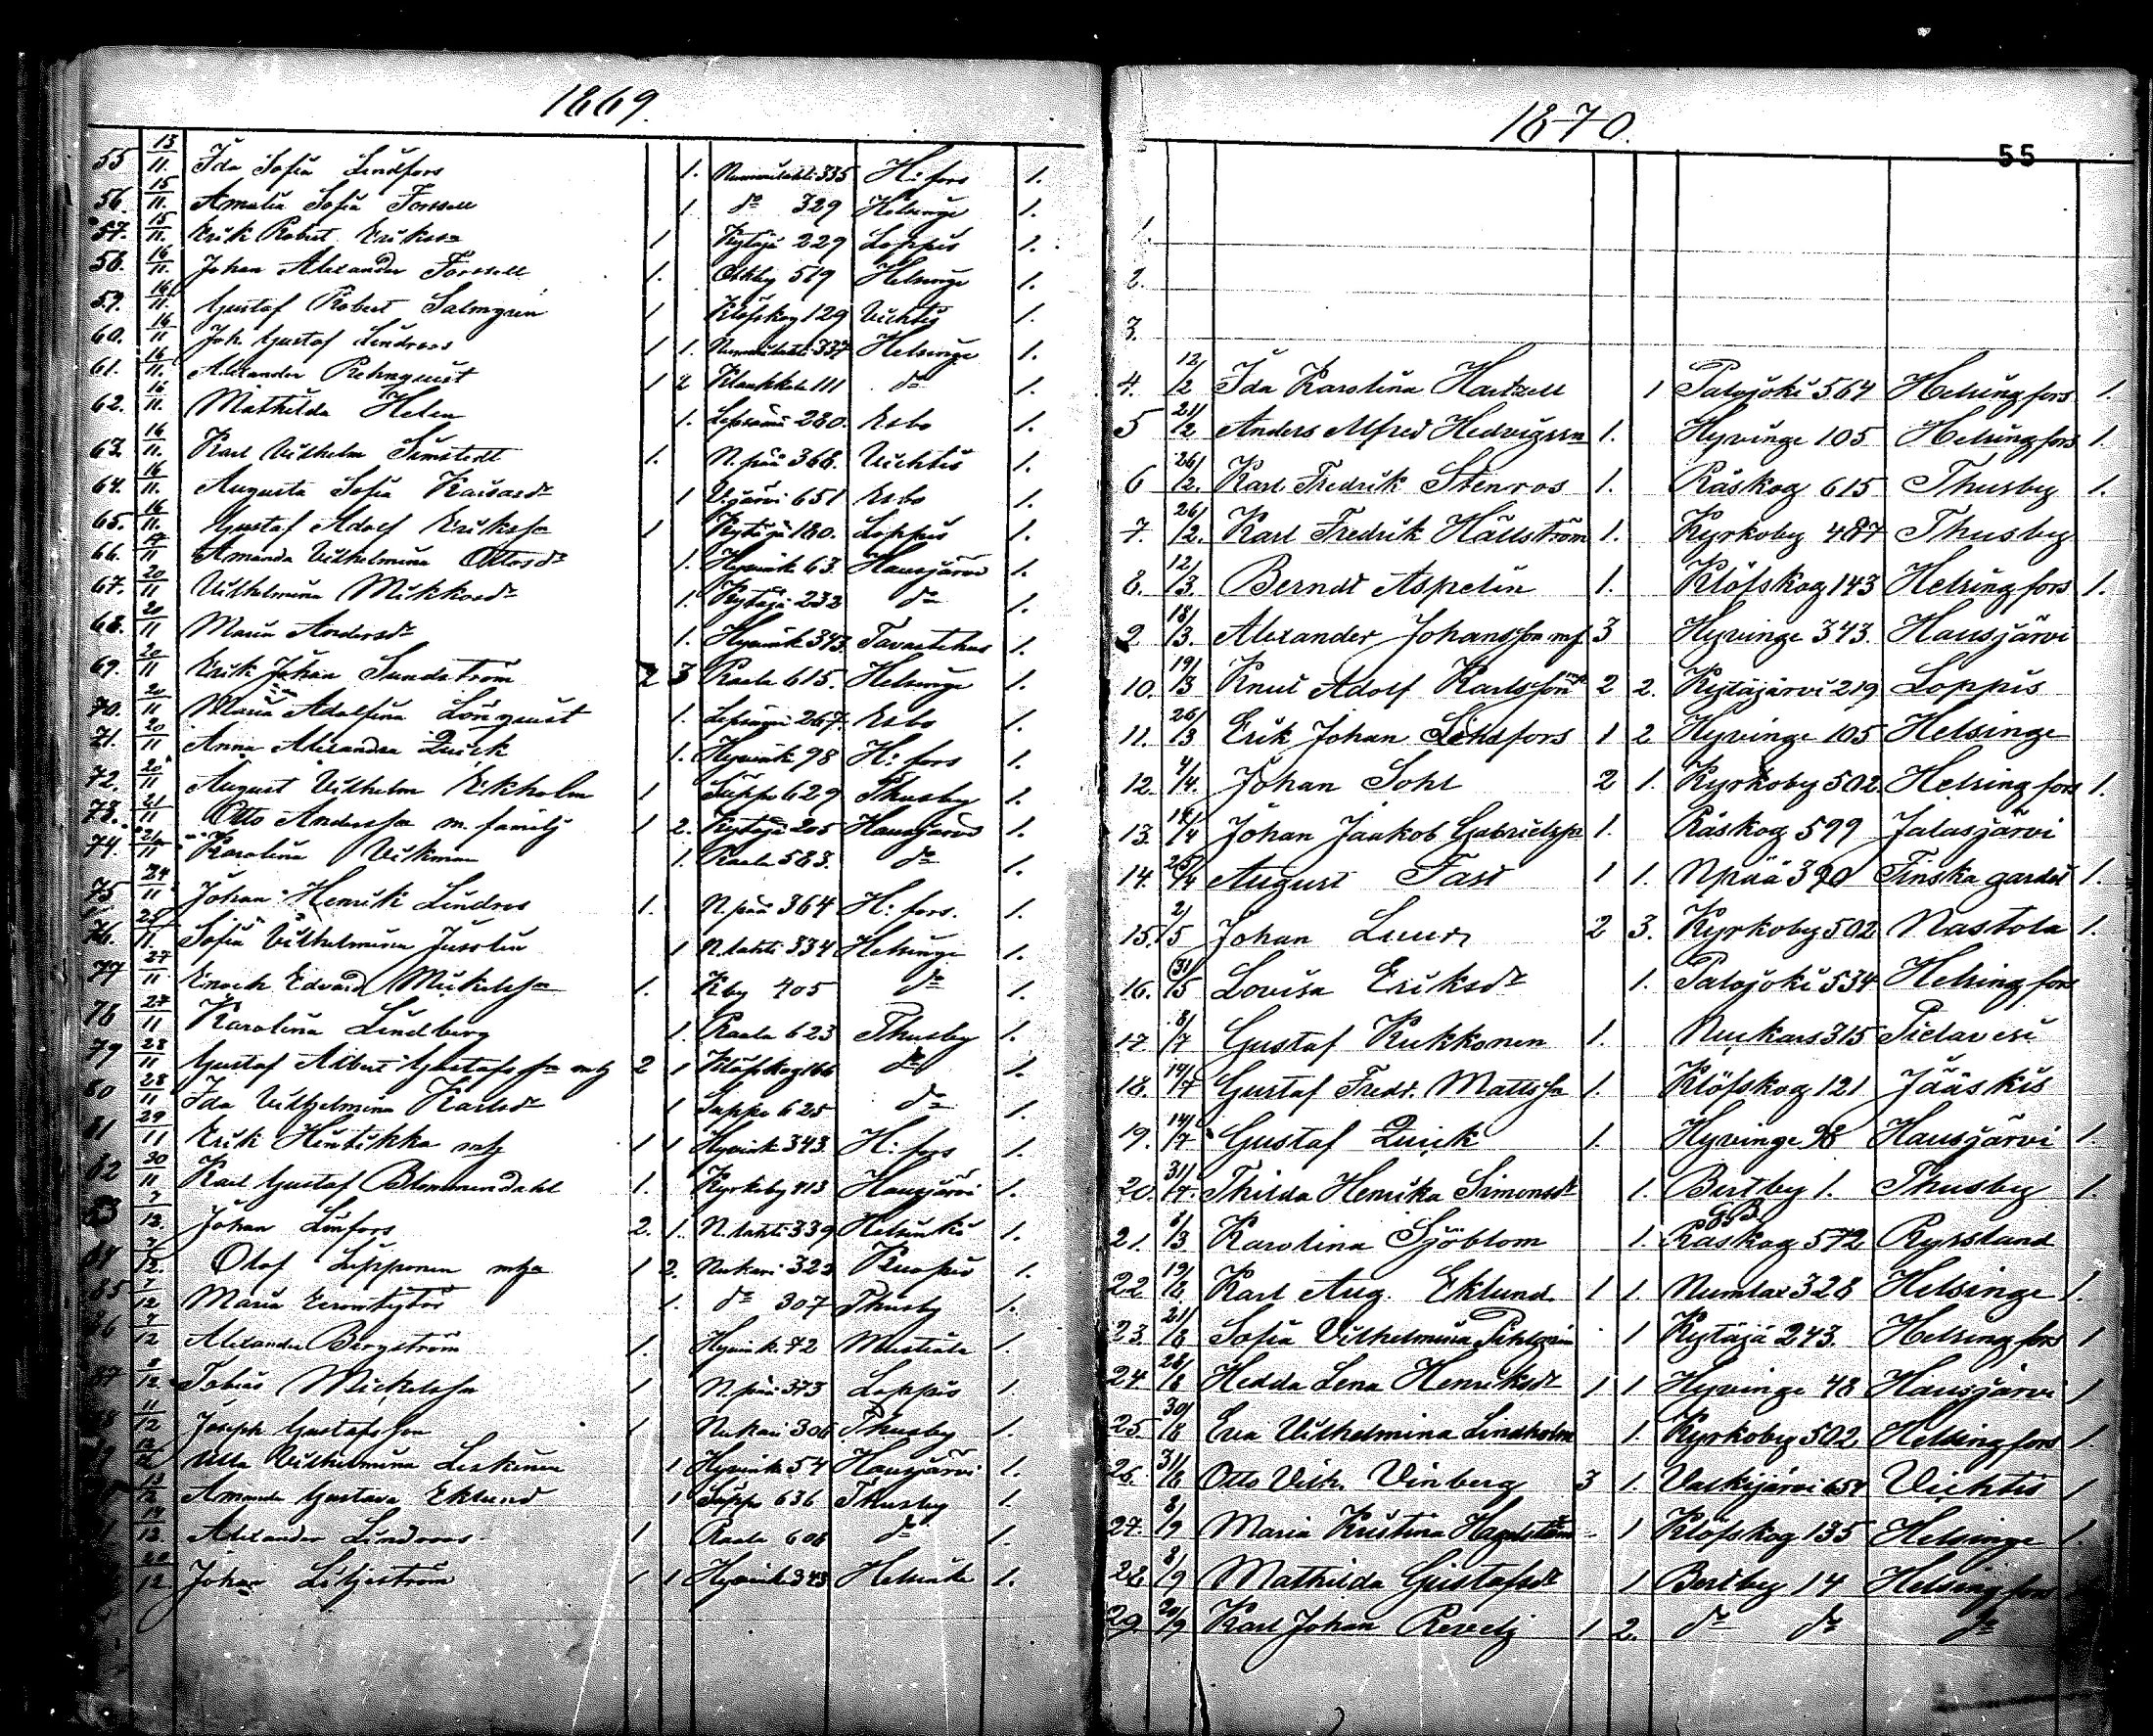 1869.
55 13/11. Ida Sofia Lindfors 1. Nummilahti 335 H:fors 1.
56. 15/11. Amalia Sofia Forssell 1. do 329 Helsinge 1.
57. 15/11. Erik Robert Erikss. 1 Kytäjä 229 Loppis 1.
58. 16/11. Johan Alexander Forssell 1. 519 Helsinge 1.
59. 16/11. Gustaf Robert Salmgren 1 Klöfskog 129 Vichtis 1.
60. 16/11 Joh. Gustaf Lindroos 1 1. Nummilahti 337 Helsinge 1.
61. 16/11. Alexander Rehnquist 1 2 Klaukkala 111 do 1.
62. 16/11. Mathilda Helen 1. Lepsämä 280. Esbo 1.
63. 16/11. Karl Vilhelm Simstedt 1. N.pää 368. Vichtis 1.
64. 16/11. Augusta Sofia 1 V.järvi 651 Esbo 1.
65. 16/11 Gustaf Adolf Eriksson 1 Kytäjä 180. Loppis 1.
66. 17/11 Amanda Vilhelmina Ottosdr 1. Hyvink. 63. Hausjärvi 1.
67. 20/11 Vilhelmina Mikkosdr 1. Kytäjä 232 do 1.
68. 20/11 Maria Andersdr 1. Hyvink 343. Tavastehus 1.
69. 20/11 Erik Johan Sundström 2 3 Raala 615. Helsinge 1.
70. 20/11 Maria Adolfina Lönnqvist 1. Lepsämä 267. Esbo 1.
71. 20/11 Anna Alexandra Quick 1. Hyvink 98 H:fors 1.
72. 20/11 August Vilhelm Ekholm 1 Suppo 629 Thusby 1.
73. 21/11 Otto Andersson m. familj 1 2. Kytäjä 205 Hausjärvi 1.
74. 21/11 Karolina Vikman 1. Raala 583. do 1.
75. 24/11 Johan Henrik Lindros 1. N.pää 364 H:fors. 1.
76. 25/11. Sofia Vilhelmina Jusslin 1 N.lahti 334 Helsinge 1.
77 27/11. Enoch Edvard Mickelsson 1. Kby 405 do 1.
78 27/11 Karolina Lindberg 1. Raala 623 Thusby 1.
79 28/11 Gustaf Albert Gustafsson 2 1 Klöfskog 166 do 1.
80 28/11 Ida Vilhelmina Karlsdr 1 Suppo 625 do 1.
81 29/11 Erik Hintikka 1 1 Hyvink 343. H:fors 1.
82 30/11 Karl Gustaf Blommendahl 1. Kyrkoby 413 Hausjärvi 1.
83 7/12. Johan Linfors 2. 1. N.lahti 339 Helsinki 1.
84 7/12. Olof Lipponen 1 2. Nukari 323 Kuopio 1.
85 7/12 Maria Eerontytär 1. do 307 Thusby 1.
86 7/12 Alexander Bergström 1. Hyvink. 72 1.
87 8/12. Tobias Mickelsson 1 N.pää 373 Loppis 1.
11/12 Joseph Gustafsson 1 Nukari 306 Thusby 1.
Ulla Vilhelmina Leskinen 1 Hyvink 54 Hausjärvi 1.
13/12 Amanda Gustava Eklund 1 Suppo 636 Thusby 1.
14/12. Alexander Lindroos 1 Raala 608 do 1.
20/12 Johan Liljeström 1 1 Hyvink 343 Helsinki 1.
1870.
55
1.
2.
3.
4. 12/2 Ida Karolina Hartzell 1 Palojoki 564 Helsingfors 1.
5 21/2 Anders Alfred Hedvigsson 1. Hyvinge 105 Helsingfors 1.
6 26/2. Karl Fredrik Stenros 1. Råskog 615 Thusby 1.
7. 26/2. Karl Fredrik Hällström 1. Kyrkoby 487 Thusby
8. 12/3. Berndt Aspelin 1. Klöfskog 143 Helsingfors 1.
9. 18/3. Alexander Johansson mf 3 Hyvinge 343. Hausjärvi
10. 19/3 Knut Adolf Karlsson 2 2. Kytäjärvi 219 Loppis
11. 26/3 Erik Johan Lihdfors 1 2 Hyvinge 105 Helsinge
12. 4/4. Johan Sohl 2 1. Kyrkoby 502 Helsingfors 1.
13. 18/4 Johan Jaakob Gabrielsson 1. Råskog 599 Jalasjärvi
14. 25/4 August Fast 1 1. Npää 390 Finska gardet 1.
15. 2/5 Johan Luur 2 3. Kyrkoby 502 Nastola 1.
16. 31/5 Lovisa Eriksdr 1. Palojoki 534 Helsingfors
17. 8/7 Gustaf Kukkonen 1. Nuckars 315 Pielavesi
18. 14/7 Gustaf Fredr. Mattsson 1. Klöfskog 121 Jääskis
19. 14/7 Gustaf Quick 1. Hyvinge 98 Hausjärvi 1.
20. 31/7. Thilda Henrika Simonsdr 1. Bertby 1. Thusby 1.
21. Karolina Sjöblom 1. Råskog 572 Ryssland
22 19/8 Karl Aug. Eklund 1 1. Numlax 328 Helsinge 1.
23. 21/8 Sofia Vilhelmina Pihlgren 1 Kytäjä 243. Helsingfors 1
24. 28/8 Hedda Lena Henriksdr 1 1 Hyvinge 48 Hausjärvi 1
25. 30/8 Eva Vilhelmina Lindholm 1. Kyrkoby 502 Helsingfors 1.
26. 31/8 Otto Vilh. Vinberg 3 1. Valkjärvi 657 Vichtis 1
27. 8/9 Maria Kristina Hagelstam 1 Klöfskog 135 Helsinge 1.
28. 8/9 Mathilda Gustafsdr 1 Bertby 14 Helsingfors
29. 20/9 Karl Johan Revelj 1 2. do do do